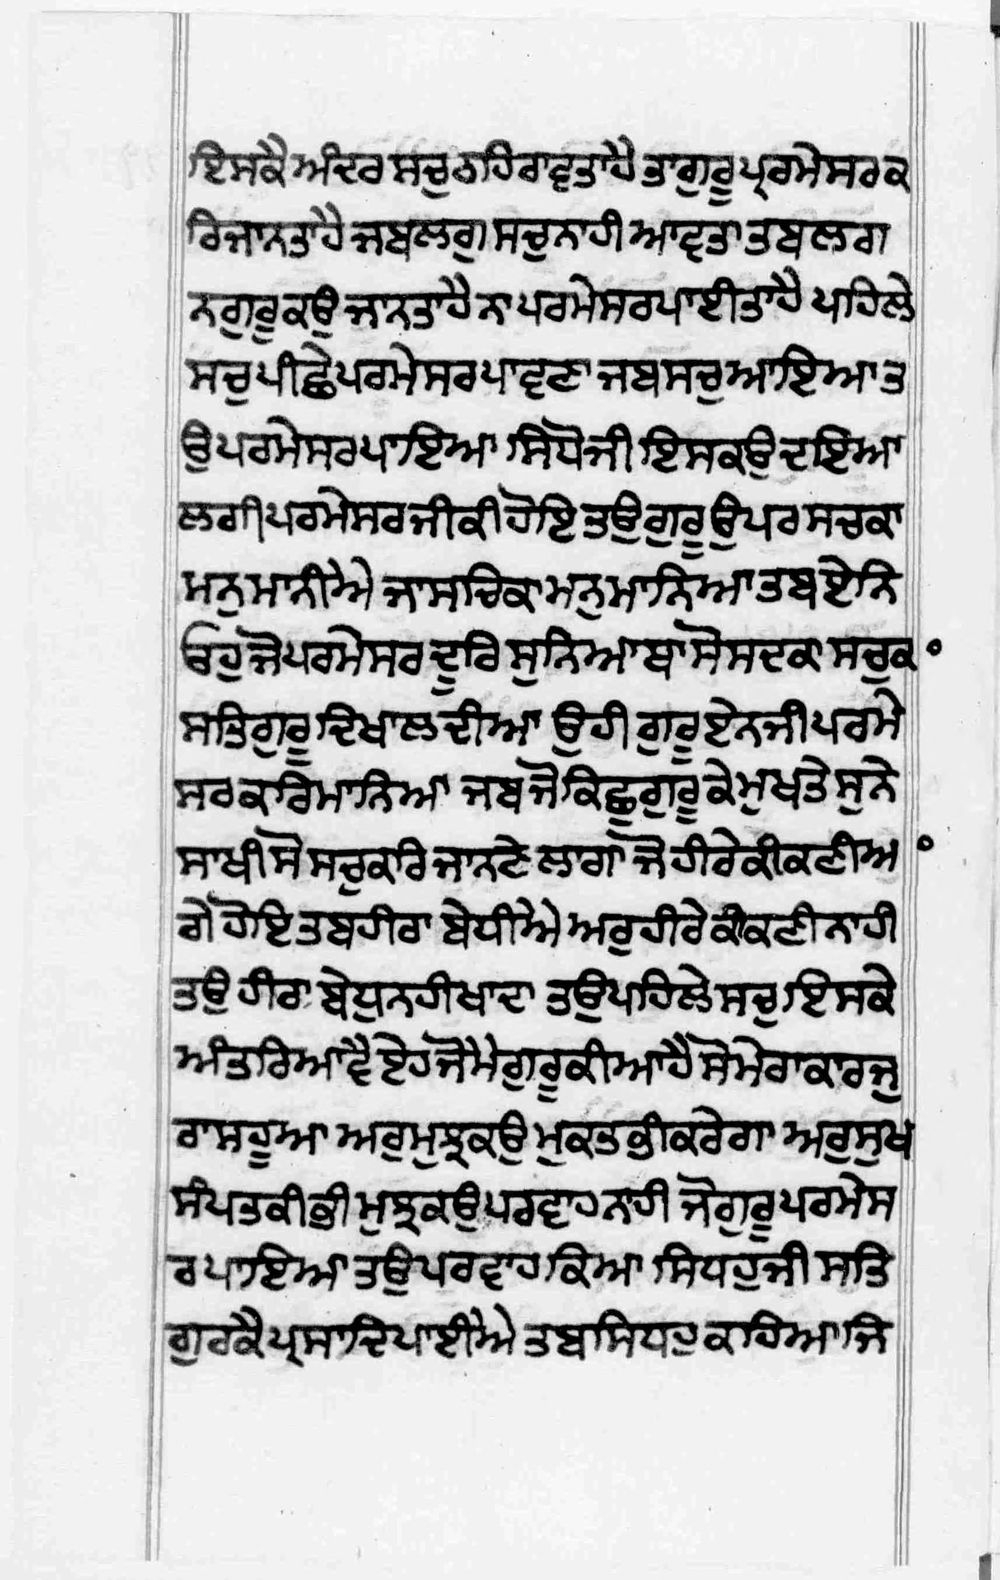 ਇਸਕੈ ਅੰਦਰ ਸਚੁ ਠਹਿਰਾਵਤਾ ਹੈ ਤਾ ਗੁਰੂ ਪ੍ਰਮੇਸਰ ਕ
ਰਿ ਜਾਨਤਾ ਹੈ ਜਬ ਲਗੁ ਸਚੁ ਨਾਹੀ ਆਵਤਾ ਤਬ ਲਗ
ਨ ਗੁਰੂ ਕਉ ਜਾਨਤਾ ਹੈ ਨਾ ਪਰਮੇਸਰ ਪਾਈਤਾ ਹੈ ਪਹਿਲੇ
ਸਚੁ ਪੀਛੇ ਪਰਮੇਸਰ ਪਾਵਣਾ ਜਬ ਸਚੁ ਆਇਆ ਤ
ਉ ਪਰਮੇਸਰ ਪਾਇਆ ਸਿਧੋ ਜੀ ਇਸ ਕਉ ਦਇਆ
ਲਗੀ ਪਰਮੇਸਰ ਜੀ ਕੀ ਹੋਇ ਤਉ ਗੁਰੂ ਉਪਰ ਸਚ ਕਾ
ਮਨੁ ਮਾਨੀਐ ਜਾ ਸਚਿ ਕਾ ਮਨੁ ਮਾਨਿਆ ਤਬ ਏਨਿ
ਓਹੁ ਜੋ ਪਰਮੇਸਰ ਦੂਰਿ ਸੁਨਿਆ ਥਾ ਸੋ ਸਦਕਾ ਸਚੁ ਕ
ਸਤਿਗੁਰੂ ਦਿਖਾਲ ਦੀਆ ਉਹੀ ਗੁਰੂ ਏਨ ਜੀ ਪਰਮੇ
ਸਰ ਕਰਿ ਮਾਨਿਆ ਜਬ ਜੋ ਕਿਛੁ ਗੁਰੂ ਕੇ ਮੁਖ ਤੇ ਸੁਨੇ
ਸਾਖੀ ਸੋ ਸਚੁ ਕਰਿ ਜਾਨਣੇ ਲਾਗਾ ਜੋ ਹੀਰੇ ਕੀ ਕਣੀ ਅ
ਗੇ ਹੋਇ ਤਬ ਹੀਰਾ ਬੇਧੀਐ ਅਰੁ ਹੀਰੇ ਕੀ ਕਣੀ ਨਾਹੀ
ਤਉ ਹੀਰਾ ਬੇਧੁ ਨਹੀ ਖਾਦਾ ਤਉ ਪਹਿਲੇ ਸਚੁ ਇਸਕੇ
ਅੰਤਰਿ ਆਵੈ ਏਹ ਜੋ ਮੈ ਗੁਰੂ ਕੀਆ ਹੈ ਸੋ ਮੇਰਾ ਕਾਰਜੁ
ਰਾਸ ਹੂਆ ਅਰੁ ਮੁਝ ਕਉ ਮੁਕਤ ਭੀ ਕਰੇਗਾ ਅਰੁ ਸੁਖ
ਸੰਪਤ ਕੀ ਭੀ ਮੁਝ ਕਉ ਪਰਵਾਹ ਨਾਹੀ ਜੋ ਗੁਰੂ ਪਰਮੇਸ
ਰ ਪਾਇਆ ਤਉ ਪਰਵਾਹ ਕਿਆ ਸਿਧਹੁ ਜੀ ਸਤਿ
ਗੁਰ ਕੈ ਪ੍ਰਸਾਦਿ ਪਾਈਐ ਤਬ ਸਿਧਹੁ ਕਹਿਆ ਜਿ